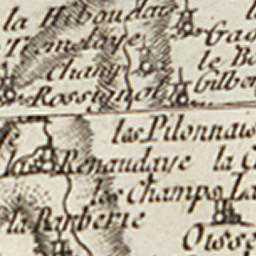 la Hiboudac
Tremelaye
Champ
Rossignol
Gilber
las Pilonnais
las Renaudaye la C
les Champs La
la Barberie
Oisse